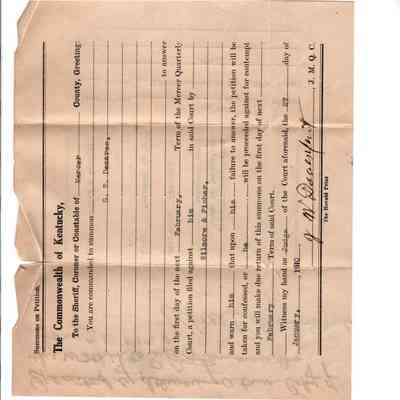 Summons on Petition.
The Commonwealth of Kentucky,
To the Sheriff, Coroner or Constable of Mercer County, Greeting:
You are commanded to summon
to answer
on the first day of the next February, Term of the Mercer Quarterly
Court, a petition filed against him in said Court by
Gilmore & Fisher,
and warn him that upon his failure to answer, the petition will be
taken for confessed, or he will be proceeded against for contempt
and you will make due return of this summons on the first day of next
February Term of said Court.
Witness my hand as Judge of the Court aforesaid, the 27 day of
January, 190
J. M. Q. C.
The Herald Print